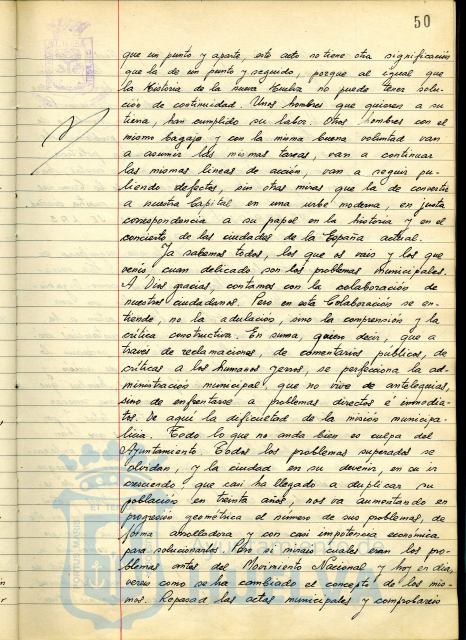 50
que un punto y aparte, este acto no tiene otra significación
que la de un punto y seguido, porque al igual que
la Historia de la nueva Huelva no puede tener solu-
ción de continuidad. Unos hombres que quieren a su
tierra, han cumplido su labor. Otros hombres con el
mismo bagaje y con la misma buena voluntad van
a asumir las mismas tareas, van a continuar
las mismas líneas de acción, van a seguir pu-
liendo defectos, sin otras miras que la de convertir
a nuestra Capital en una urbe moderna, en justa
correspondencia a su papel en la historia y en el
concierto de las ciudades de la España actual.
Ya sabemos todos, los que os vais y los que
venís, cuan delicado son los problemas municipales.
A Dios gracias, contamos con la colaboración de
nuestros ciudadanos. Pero en esta Colaboración se en-
tiende, no la adulación, sino la comprensión y la
crítica constructiva. En suma, quiero decir, que a
traves de reclamaciones, de comentarios publicos, de
críticas a los humanos yerros, se perfecciona la ad-
ministración municipal, que no vive de entelequias,
sino de enfrentarse a problemas directos é inmedia-
tos. De aquí la dificultad de la misión municipa-
licia. Todo lo que no anda bien es culpa del
Ayuntamiento. Todos los problemas superados se
olvidan, y la ciudad en su devenir, en su ir
creciendo que casi ha llegado a duplicar su
población en treinta años, nos va aumentando en
progresión geométrica el número de sus problemas, de
forma arrolladora y con casi impotencia económica
para solucionarlos. Pero si mirais cuales eran los pro-
blemas antes del Movimiento Nacional y hoy en dia,
vereis como se ha cambiado el concepto de los mis-
mos. Repasad las actas municipales y comprobareis